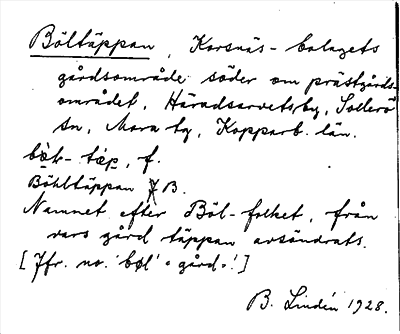 Böltäppan, Korsnäs-bolagets
gårdsområde söder om prästgårds-
området, Häradsarvetsby, Sollerö
sn, Mora tg, Kopparb. län.
bö̀l-tɛp, f.
Böhltäppan B.
Namnet efter Böl-folket, från
vars gård täppan avsöndrats.
[Jfr. no. 'bøl' "gård"!]
B. Lindén 1928.